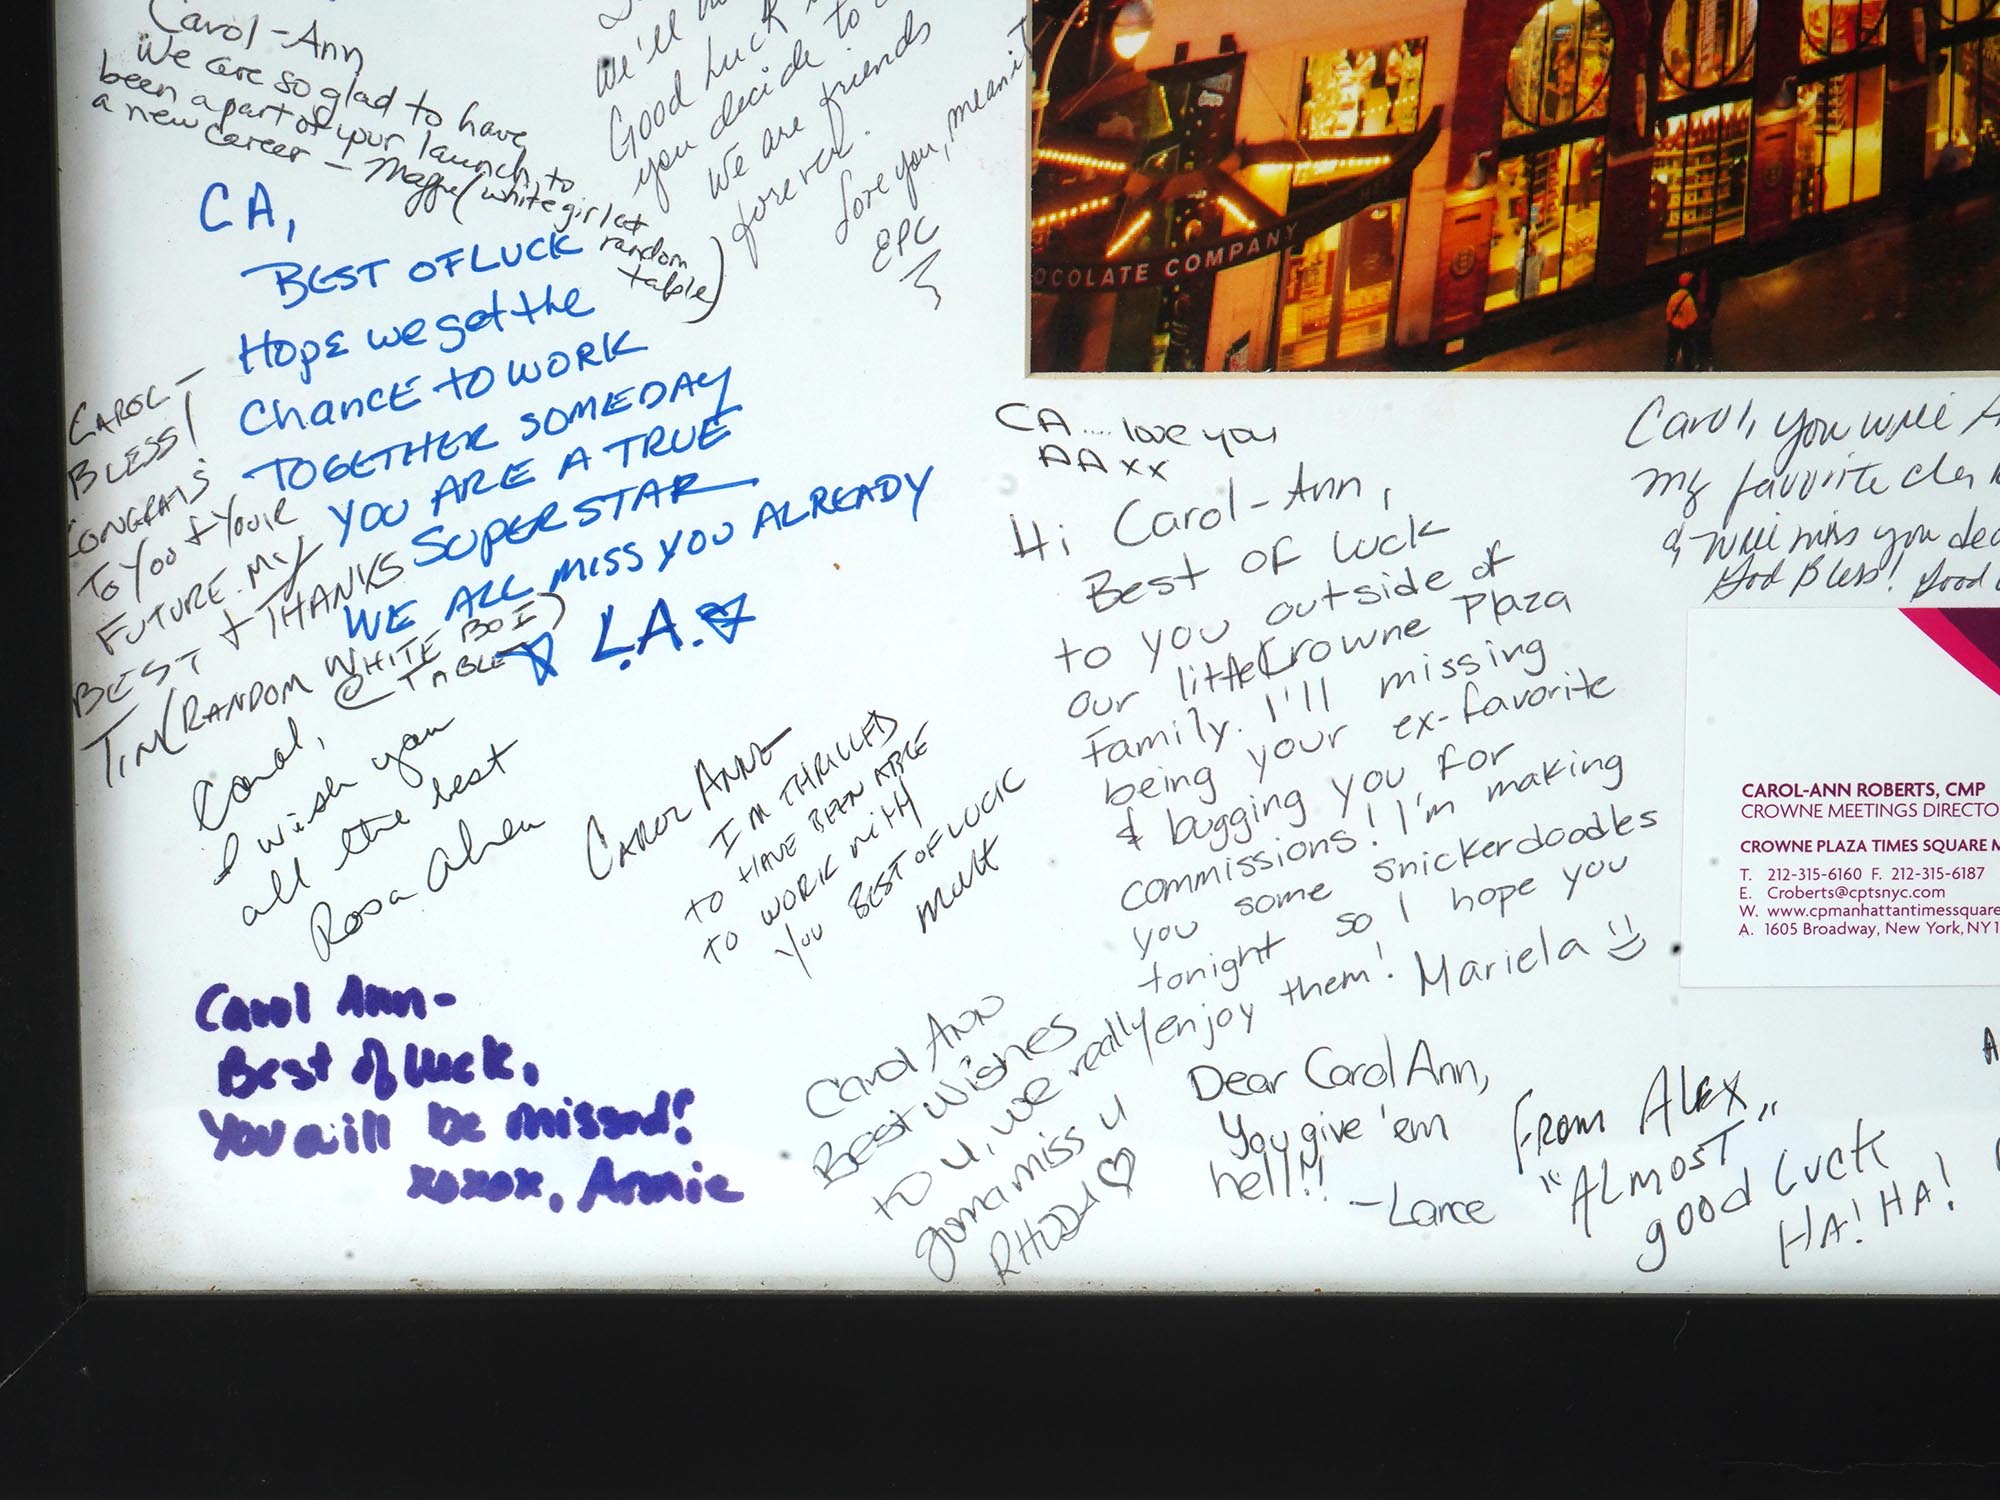 Carol-Ann
We are so glad to have
been a part of your launch to
a new career - Maggie (white girl at
random
table)
We'll
Good Luck
you decide to
We are friends
forever.
Love you, mean it
EPC
CA,
BEST OF LUCK
HOPE we get the
Chance to WORK
TOGETHER SOMEDAY
YOU ARE A TRUE
SUPERSTAR
WE ALL MISS YOU ALREADY
L.A.
CAROL-
BLESS!
CONGRATS
TO YOU & YOUR
FUTURE. MY
BEST & THANKS
TIM (RANDOM WHITE BOI
@ TABLE)
Carol,
I wish you
all the best
Rosa
CAROL ANNE
I'M THRILLED
TO HAVE BEEN ABLE
TO WORK WITH
YOU BEST OF LUCK
Matt
Carol Ann-
Best of luck,
You will be missed!
xoxox, Annie
OCOLATE COMPANY
CA .... love you
AA xx
Hi Carol-Ann,
Best of luck
to you outside of
our little Crowne Plaza
Family. I'll missing
being your ex-favorite
& bugging you for
commissions! I'm making
you some snickerdoodles
tonight so I hope you
really enjoy them! Mariela
Carol Ann
Best Wishes
to u, we
gonna miss u
RHODA
Dear Carol Ann,
You give 'em
hell!!
-Lance
From Alex
"Almost"
good Luck
HA! HA!
Carol, you will
my favorite
& will miss you
God Bless! Good
CAROL-ANN ROBERTS, CMP
CROWNE MEETINGS DIRECTO
CROWNE PLAZA TIMES SQUARE M
T. 212-315-6160 F. 212-315-6187
E. Croberts@cptsnyc.com
W. www.cpmanhattantimessquare
A. 1605 Broadway, New York, NY 1